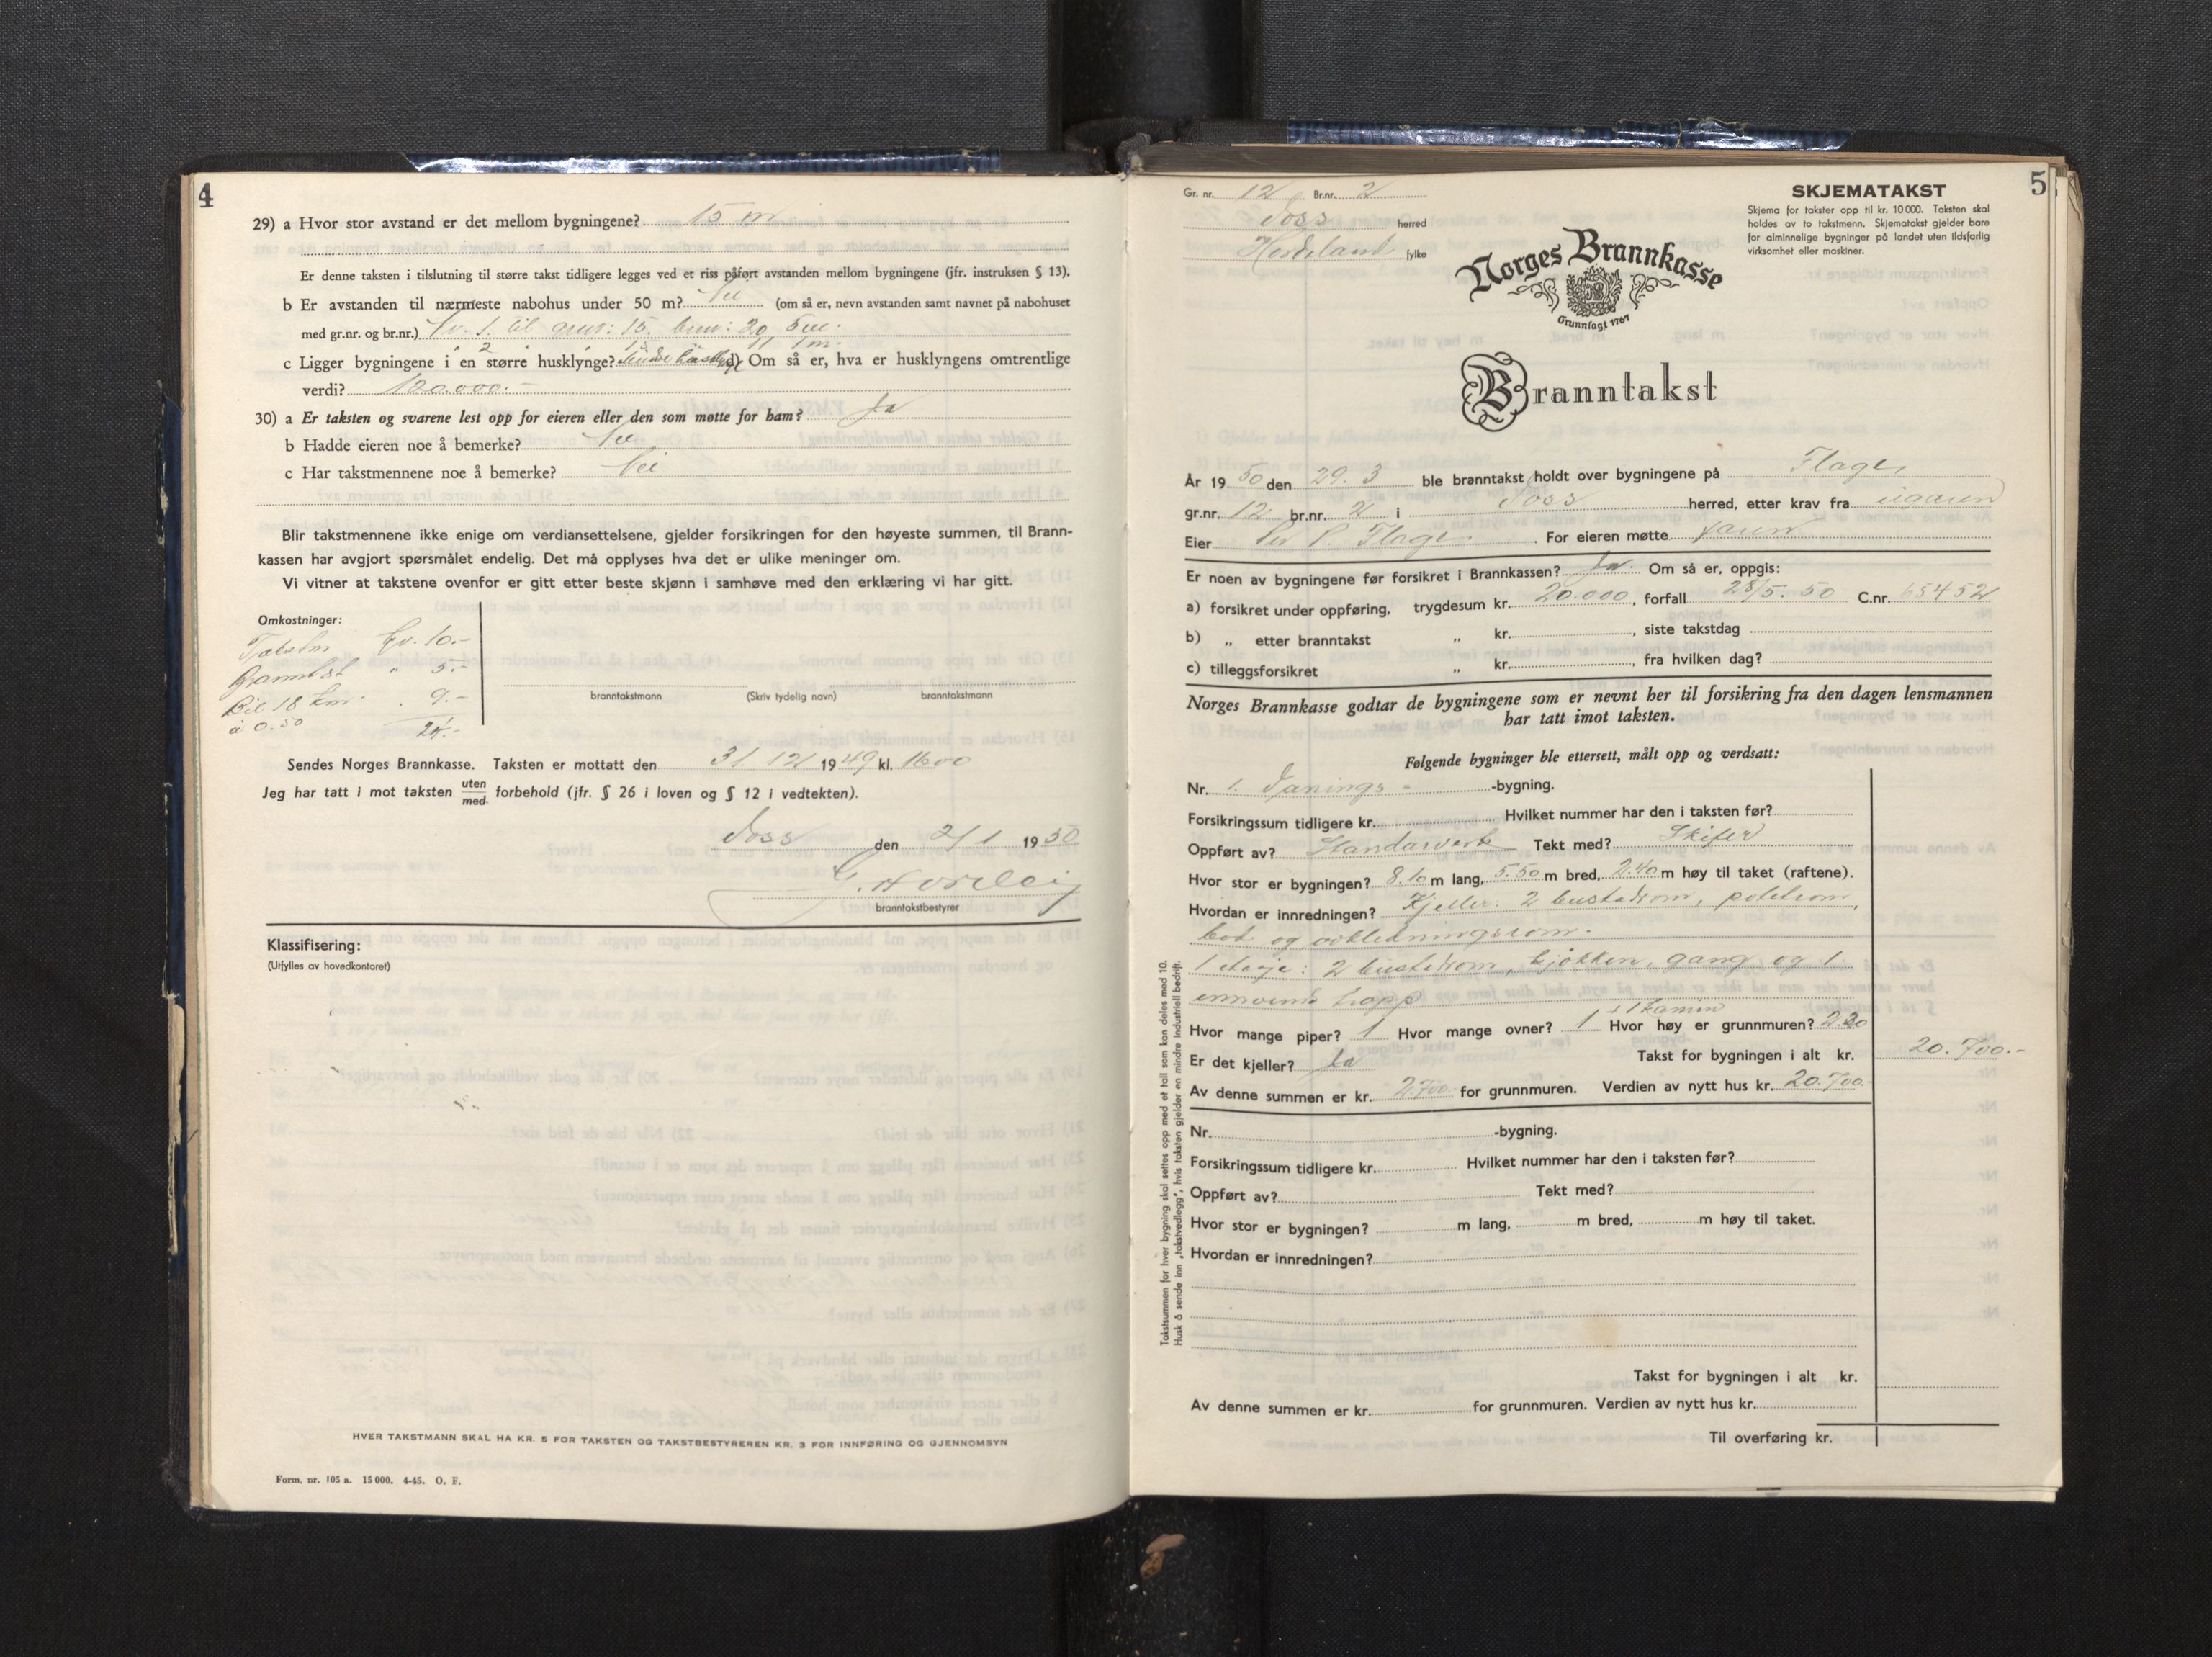 4
29) a Hvor stor avstand er det mellom bygningene? 15 m
Er denne taksten i tilslutning til større takst tidligere legges ved et riss påført avstanden mellom bygningene (jfr. instruksen § 13).
b Er avstanden til nærmeste nabohus under 50 m? Nei (om så er, nevn avstanden samt navnet på nabohuset
med gr.nr. og br.nr.) Nr. 1 til gnr: 15. bnr: 20 5 m.
2 15 11 1 m.
c Ligger bygningene i en større husklynge? d) Om så er, hva er husklyngens omtrentlige
verdi? 120.000.-
30) a Er taksten og svarene lest opp for eieren eller den som møtte for ham? Ja
b Hadde eieren noe å bemerke? Nei
c Har takstmennene noe å bemerke? Nei
Blir takstmennene ikke enige om verdiansettelsene, gjelder forsikringen for den høyeste summen, til Brann-
kassen har avgjort spørsmålet endelig. Det må opplyses hva det er ulike meninger om.
Vi vitner at takstene ovenfor er gitt etter beste skjønn i samhøve med den erklæring vi har gitt.
Omkostninger:
Takstm kr. 10.-
Branntbst " 5.-
Bil 18 km . 9.-
à 0.50 24.-
branntakstmann (Skriv tydelig navn) branntakstmann
Sendes Norges Brannkasse. Taksten er mottatt den 31. 12 1949 kl. 1600
Jeg har tatt i mot taksten uten/med forbehold (jfr. § 26 i loven og § 12 i vedtekten).
Voss den 2/1 1950
branntakstbestyrer
Klassifisering:
(Utfylles av hovedkontoret)
HVER TAKSTMANN SKAL HA KR. 5 FOR TAKSTEN OG TAKSTBESTYREREN KR. 3 FOR INNFØRING OG GJENNOMSYN
Form. nr. 105 a. 15 000. 4-45. O. F.
5
Gr. nr. 12 Br.nr. 2
Voss herred
Hordaland fylke
SKJEMATAKST
Skjema for takster opp til kr. 10 000. Taksten skal
holdes av to takstmenn. Skjematakst gjelder bare
for alminnelige bygninger på landet uten ildsfarlig
virksomhet eller maskiner.
Norges Brannkasse
Grunnlagt 1767
Branntakst
År 1950 den 29. 3 ble branntakst holdt over bygningene på Flage
gr.nr. 12 br.nr. 2 i Voss herred, etter krav fra eigaren
Eier Per P. Flage. For eieren møtte
Er noen av bygningene før forsikret i Brannkassen? Ja. Om så er, oppgis:
a) forsikret under oppføring, trygdesum kr. 20.000, forfall 28/5. 50 C.nr. 65452
b) „ etter branntakst „ kr. , siste takstdag
c) tilleggsforsikret „ kr. , fra hvilken dag?
Norges Brannkasse godtar de bygningene som er nevnt her til forsikring fra den dagen lensmannen
har tatt imot taksten.
Følgende bygninger ble ettersett, målt opp og verdsatt:
Nr. 1. Vånings -bygning.
Forsikringssum tidligere kr. Hvilket nummer har den i taksten før?
Oppført av? Standarverk Tekt med? Skifer
Hvor stor er bygningen? 8.10 m lang, 5.50 m bred, 2.40 m høy til taket (raftene).
Hvordan er innredningen? Kjeller: 2 bustadrom, potetrom,
bod og avkledningsrom.
1 etasje: 2 bustadrom, kjøkken, gang og 1
innvend trapp
Hvor mange piper? 1 Hvor mange ovner? 1 + 1 kamin Hvor høy er grunnmuren? 2.20
Er det kjeller? Ja Takst for bygningen i alt kr. 20.700.-
Av denne summen er kr. 2700 for grunnmuren. Verdien av nytt hus kr. 20.700.-
Nr. -bygning.
Forsikringssum tidligere kr. Hvilket nummer har den i taksten før?
Oppført av? Tekt med?
Hvor stor er bygningen? m lang, m bred, m høy til taket.
Hvordan er innredningen?
Takst for bygningen i alt kr.
Av denne summen er kr. for grunnmuren. Verdien av nytt hus kr.
Til overføring kr.
Takstsummen for hver bygning skal settes opp med et tall som kan deles med 10.
Husk å sende inn „takstvedlegg“, hvis taksten gjelder en mindre industriell bedrift.